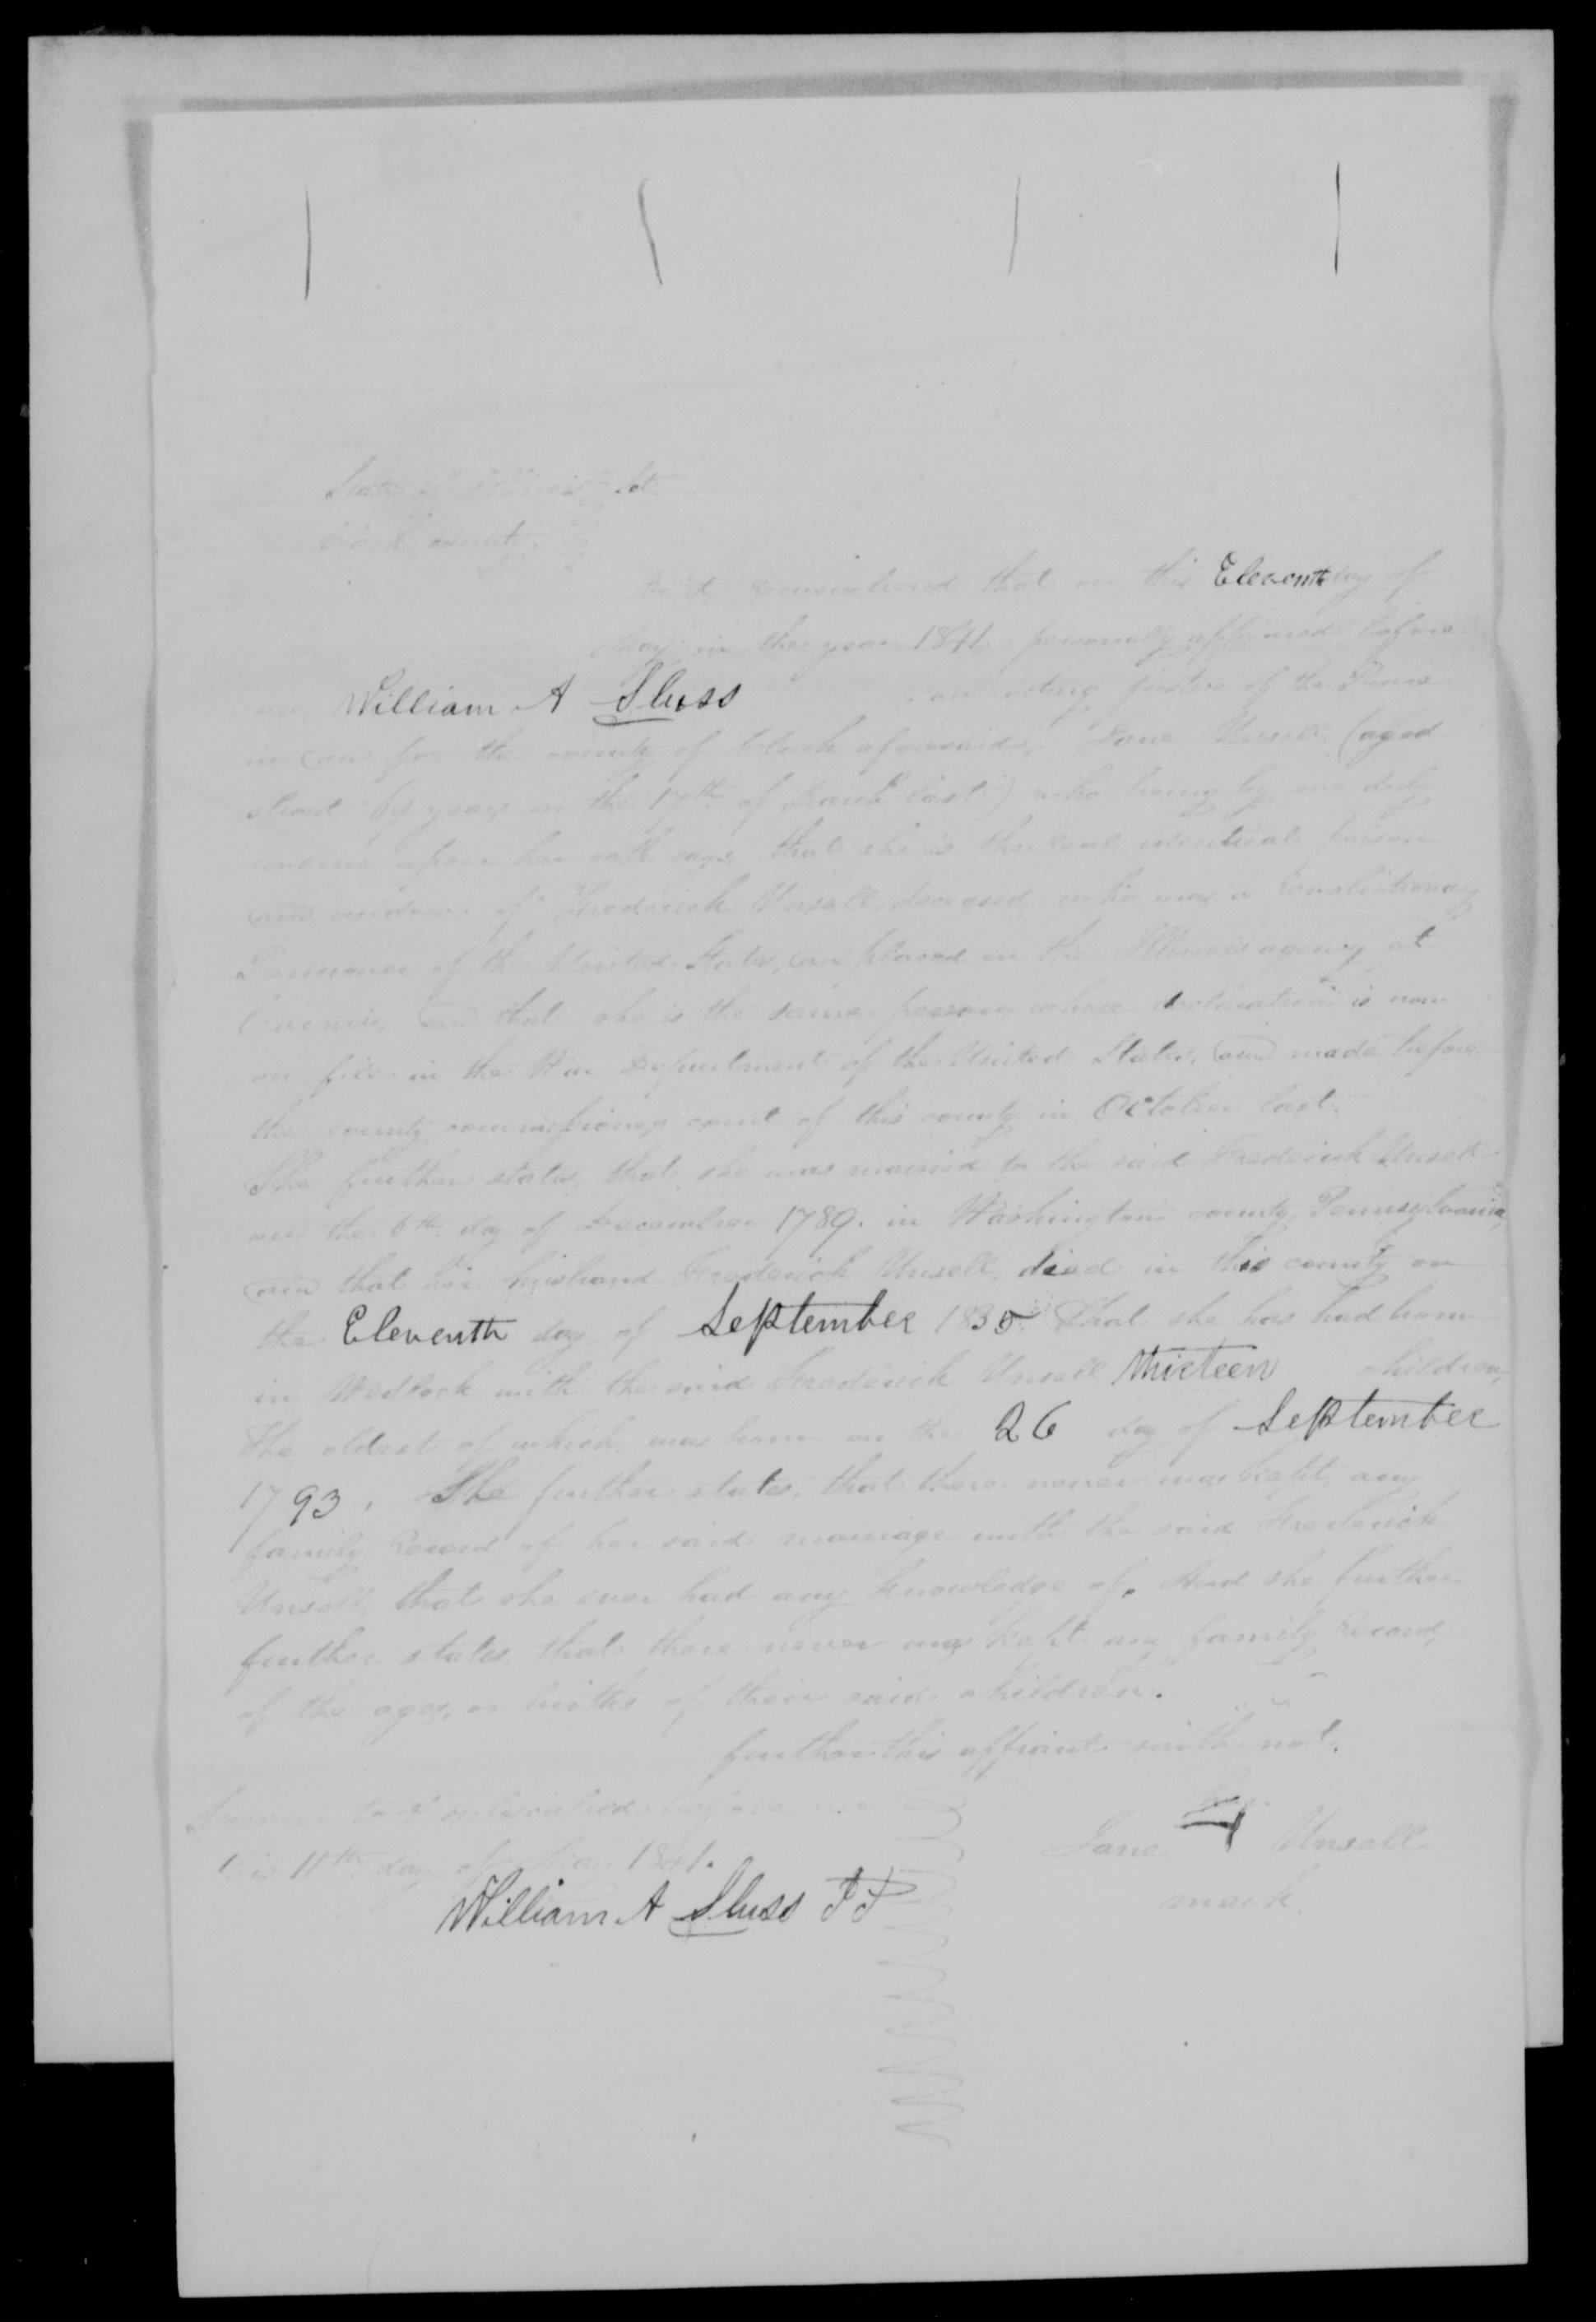 State of Illinois Sct.
Clark county
Be it remembered that on this Eleventh day of
May in the year 1841 personally appeared before
me William A Sluss an acting justice of the Peace
in and for the county of Clark aforesaid, Jane Unsell (aged
about 69 years on the 17th of March last) who being by me duly
sworn upon her oath says, that she is the real identical person
and widow of Frederick Unsell, deceased, who was a Revolutionary
Pensioner of the United States, and placed on the Illinois agency at
and that she is the same person, whose declaration is now
on file in the War Department of the United States, and made before
the county commissioners court of this county in October last.
She further states, that she was married to the said Frederick Unsell
on the 6th day of December 1789. in Washington county, Pennsylvania,
and that her husband Frederick Unsell, died in this county on
the Eleventh day of September 1835. That she has had born
in Wedlock with the said Frederick Unsell thirteen children,
The oldest of which was born on the 26 day of September
1793. She further states, that there never was kept, any
family Record of her said marriage with the said Frederick
Unsell, that she ever had any knowledge of. And she further
further states, that there never was kept any family Record,
of the ages, or births of their said children.
further this affiant saith not.
Sworn to & subscribed before me
this 11th day of May 1841.
her
Jane Unsell
mark
William A Sluss J P